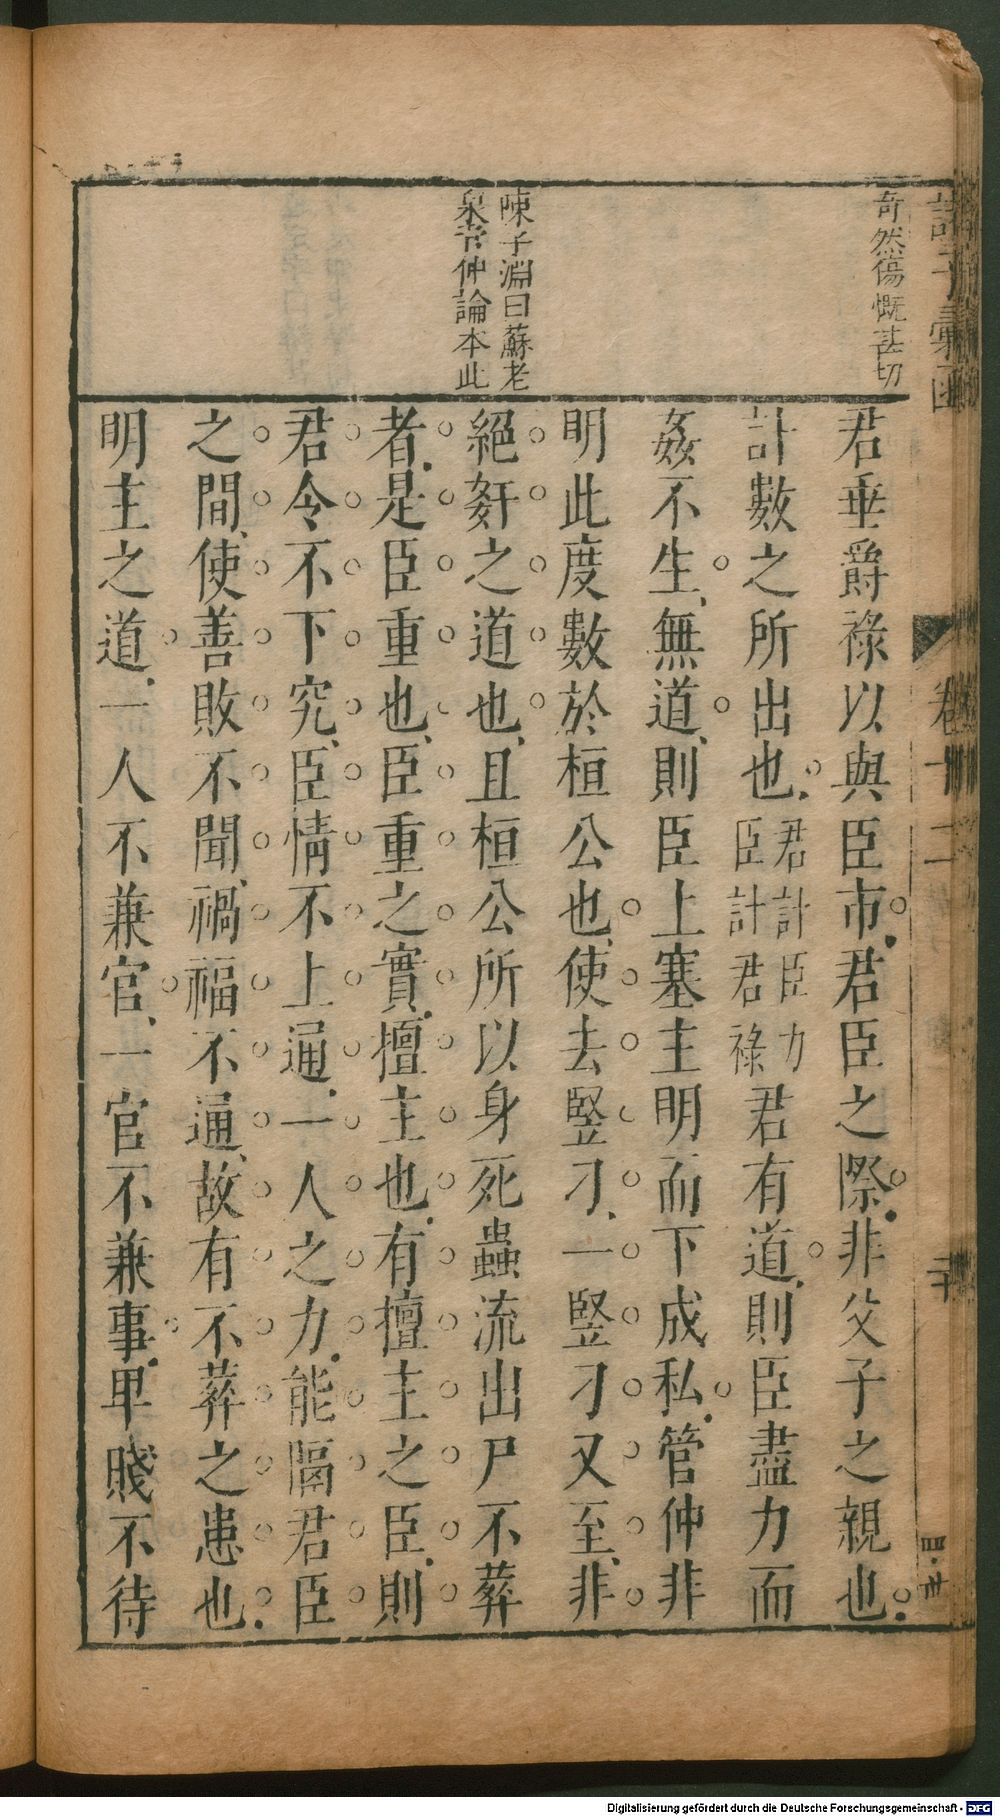 諸子彙函
卷十二
二十
奇然傷慨甚切
陳子淵曰蘇老
泉管仲論本此
君垂爵祿以與臣市君臣之際非父子之親也
計數之所出也君計臣力臣計君祿君有道則臣盡力而
姦不生無道則臣上塞主明而下成私管仲非
明此度數於桓公也使去竪刁一竪刁又至非
絕奸之道也且桓公所以身死蟲流出尸不葬
者是臣重也臣重之實擅主也有擅主之臣則
君令不下究臣情不上通一人之力能隔君臣
之間使善敗不聞禍福不通故有不葬之患也
明主之道一人不兼官一官不兼事卑賤不待
Digitalisierung gefördert durch die Deutsche Forschungsgemeinschaft - DFG